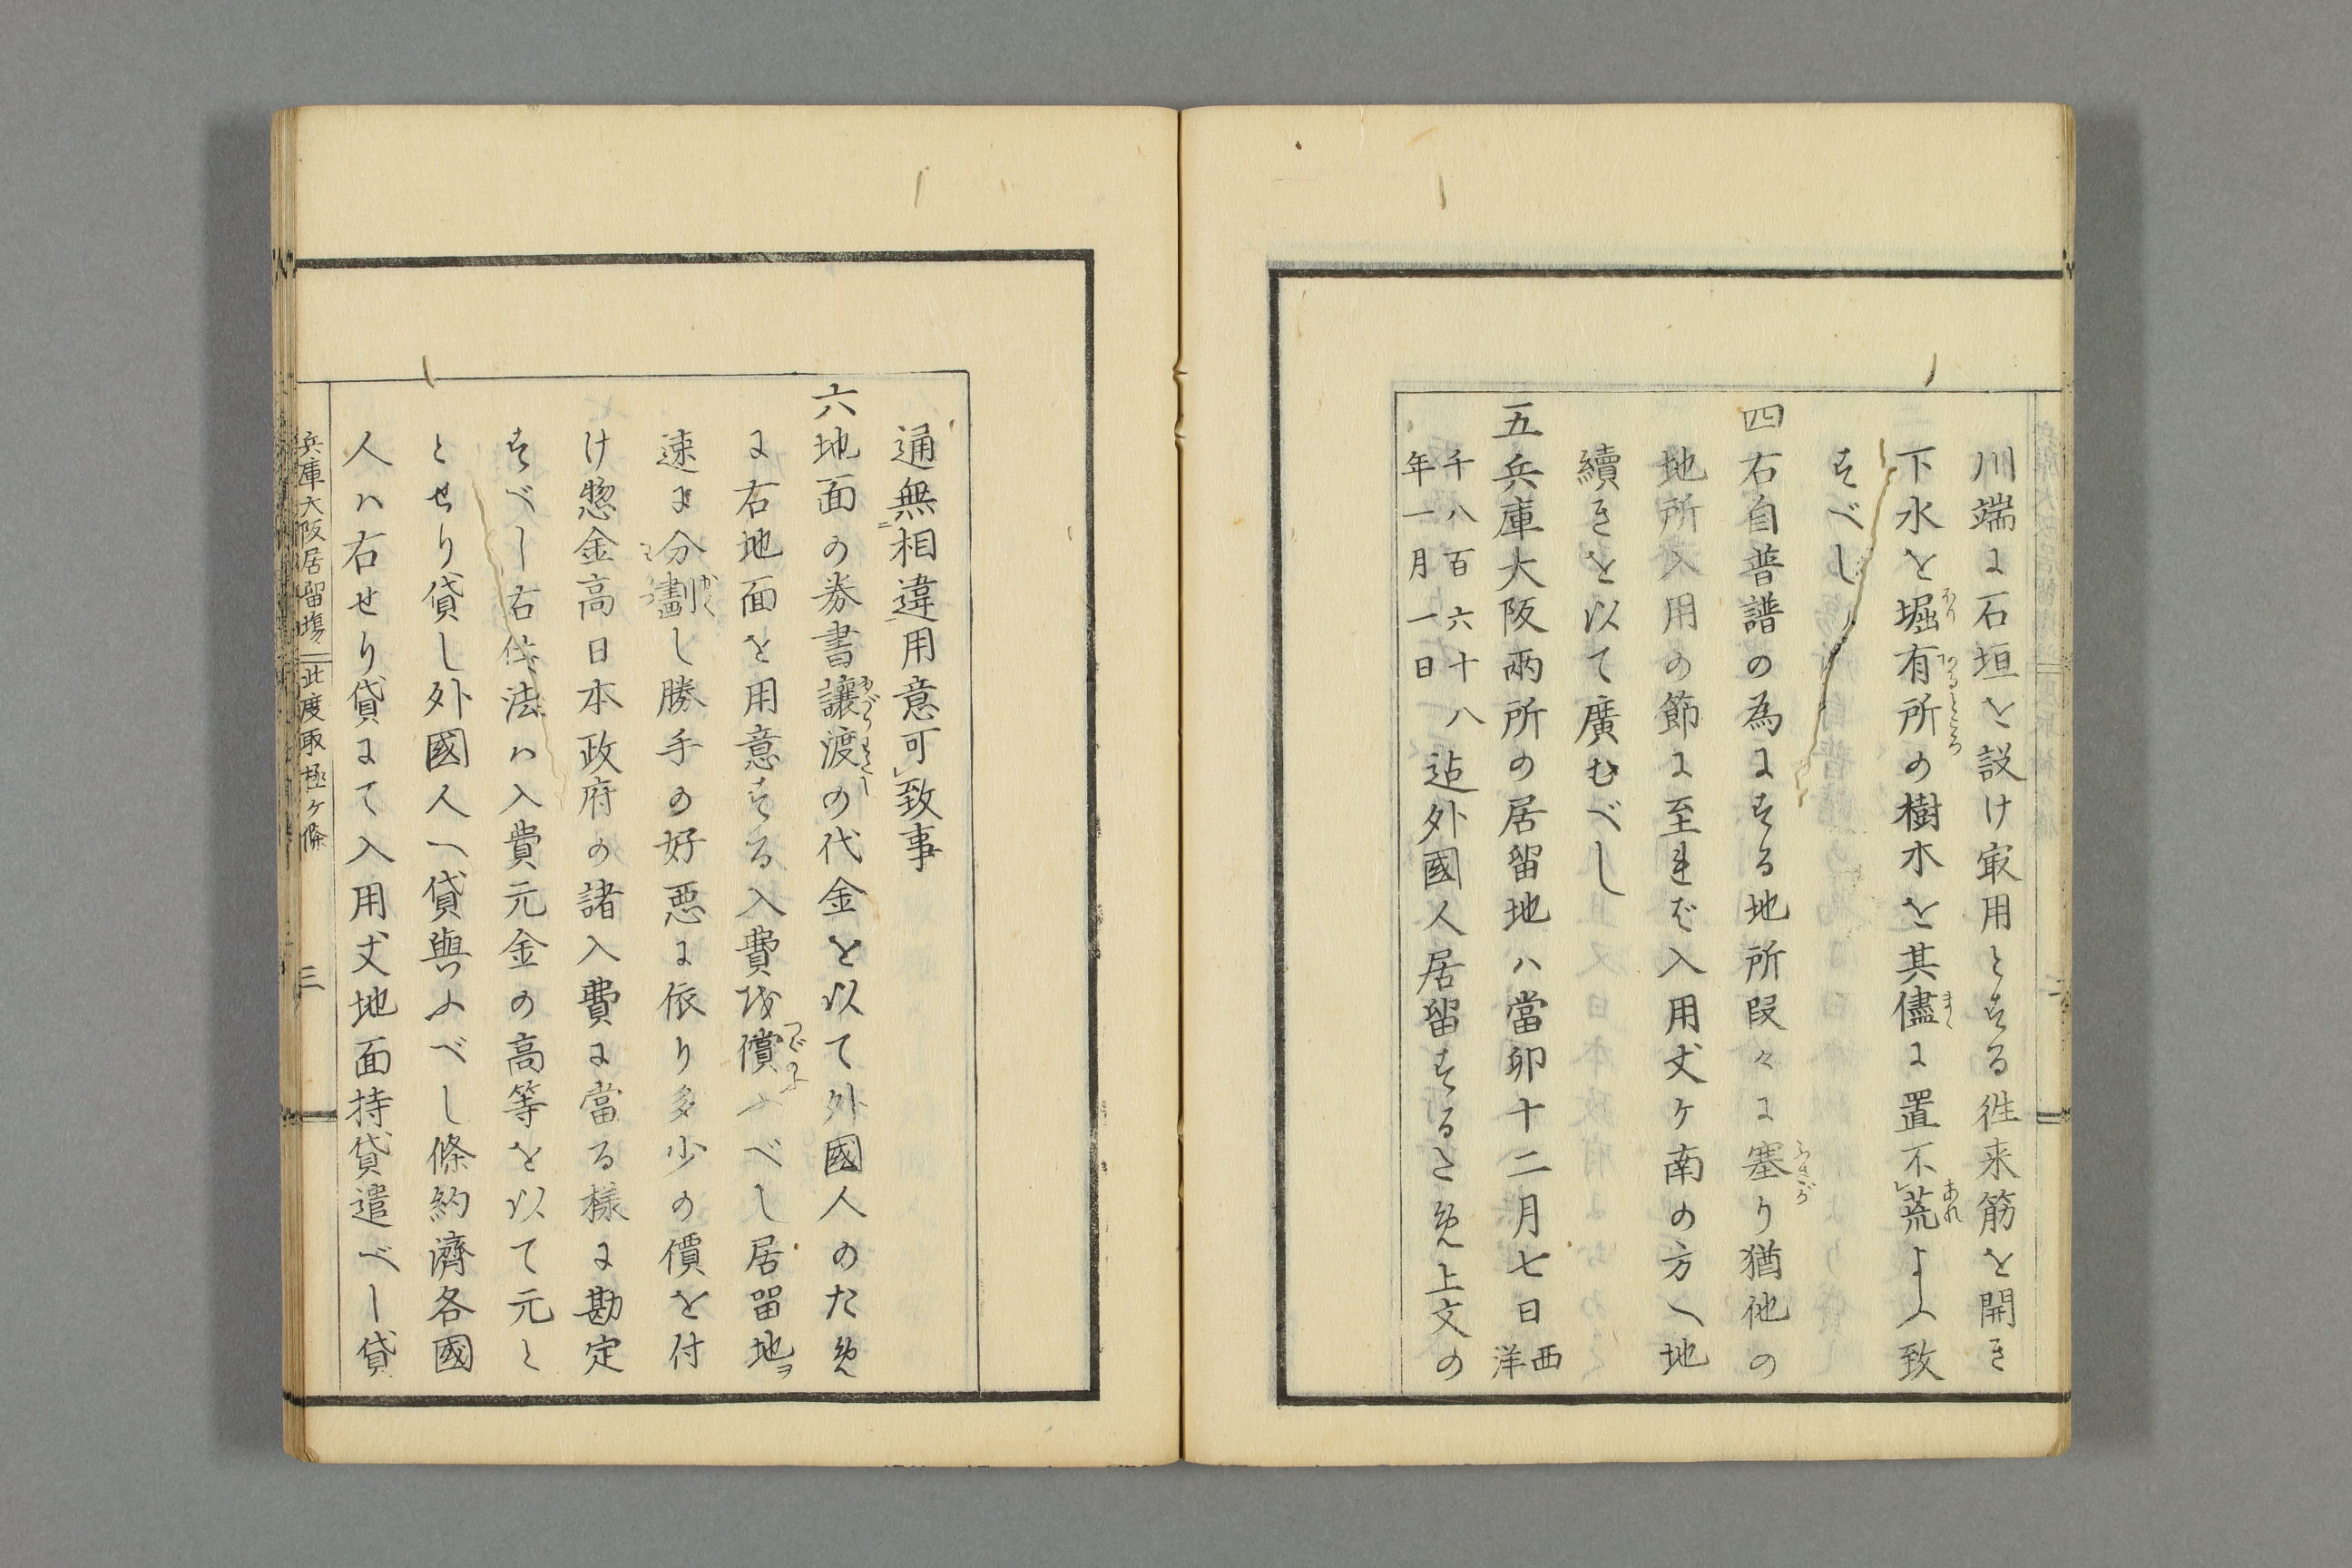 川端に石垣を設け㝡用とする徃来筋を開き
下水を堀有所の樹木を其儘に置不荒よふ致
すべし
四右自普譜の為にする地所段々に塞り猶他の
地所入用の節に至れば入用丈ケ南の方へ地
續きを以て廣むべし
五兵庫大阪兩所の居留地ハ當卯十二月七日西洋
千八百六十八年一月一日迠外國人居留するため上文の
通無相違用意可致事
六地面の券書讓渡の代金を以て外國人のため
に右地面を用意する入費を償ふべし居留地ヲ
速に分劃し勝手の好悪に依り多少の價を付
け惣金高日本政府の諸入費に當る様に勘定
すべし右仕法ハ入費元金の高等を以て元と
とせり貸し外國人へ貸與ふべし條約濟各國
人ハ右せり貸にて入用丈地面持貸遣べし貸
兵庫大阪居留塲 此度取極ケ條 三